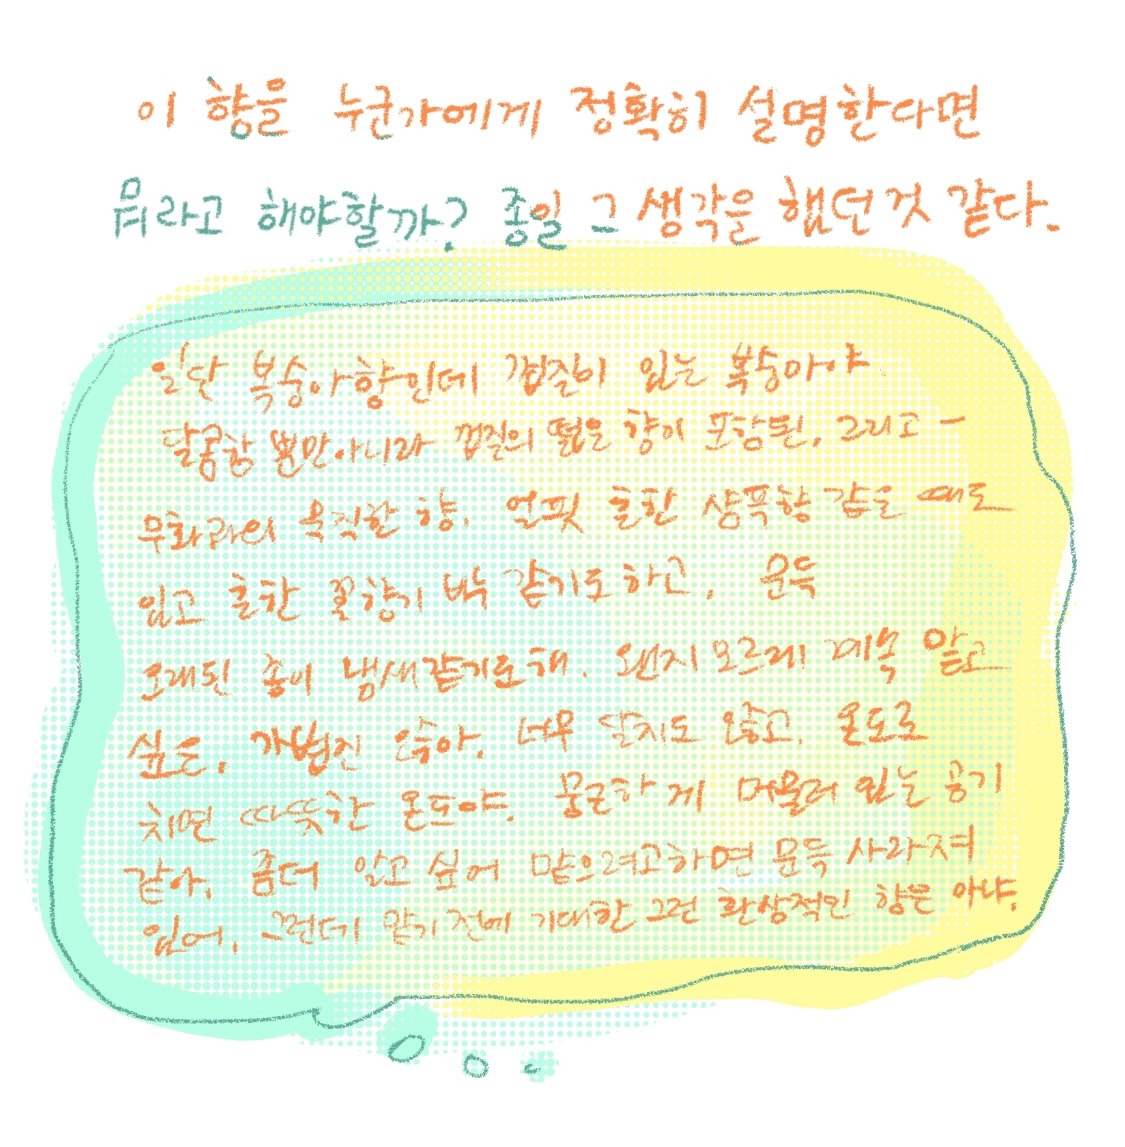 이 향을 누군가에게 정확히 설명한다면
뭐라고 해야할까? 종일 그 생각을 했던것 같다.
일단 복숭아향인데 껍질이 있는 복숭아야
달콤함 뿐만아니라 껍질의 떫은 향이 포함된, 그리고 -
무화과의 묵직한 향. 언핏 흔한 샴푹향 같을 때도
있고 흔한 꽃향기 같기도 하고, 문득
오래된 종이 냄새같기도 해. 왠지 모르게 계속 맡고
싶은, 가볍진 않아. 너무 달지도 않고. 온도로
치면 따뜻한 온도야. 뭉근하게 머물러 있는 공기
같아. 좀더 알고 싶어 맡으려고하면 문득 사라져
있어. 그런데 맡기 전에 기대한 그런 환상적인 향은 아냐.